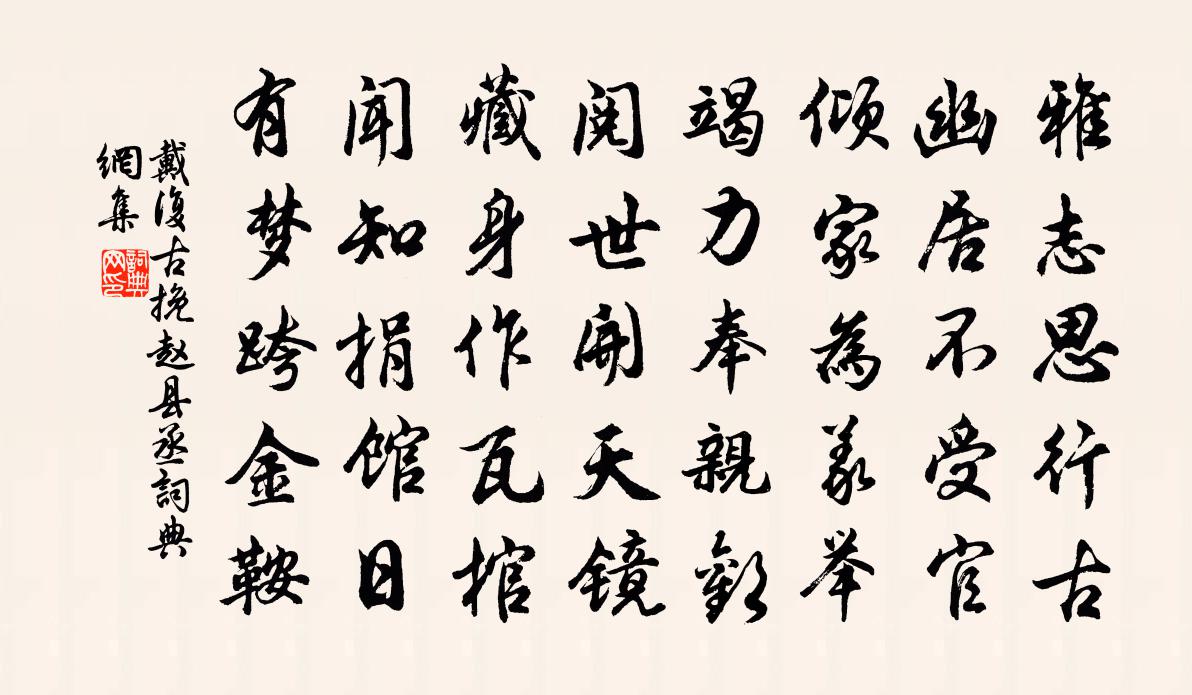 雅志思行古
幽居不受官
倾家為義举
竭力奉親歡
阅世開天镜
藏身作瓦棺
闻知捐馆日
有梦跨金鞍
戴復古挽赵县丞詞典
網集
詞典
网印